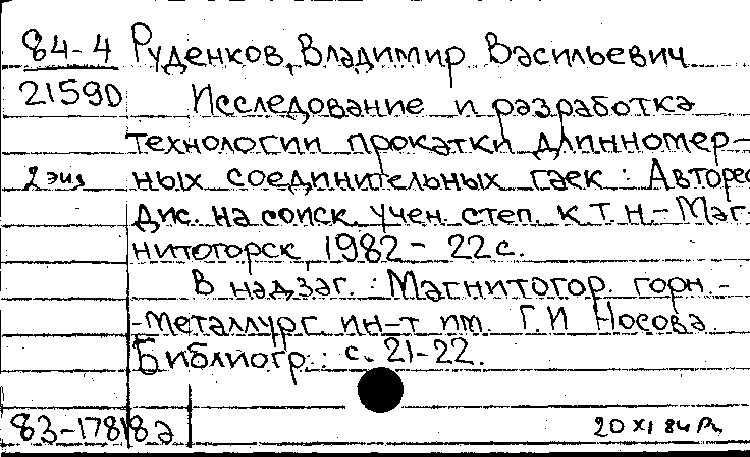 84-4 Руденков, Владимир Васильевич
21590 Исследование и разработка
технологии прокатки длинномер-
2 экз ных соединительных гаек : Авторе
дис. на соиск. учен. степ. к.т.н.- Маг-
нитогорск, 1982 - 22 с.
В надзаг. : Магнитогор. горн.-
-металлург. ин-т им. Г.И Носова.
Библиогр.: с. 21-22.
83-17818а 20 XI 84